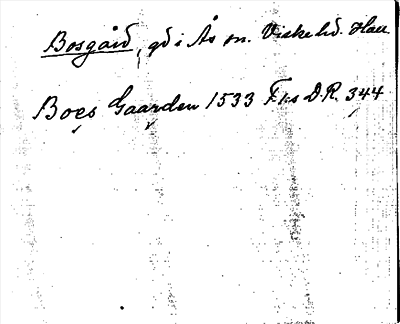 Bosgård, gd i Ås sn. Viske hd. Hall
Boes Gaarden 1533 F1:s D.R. 344